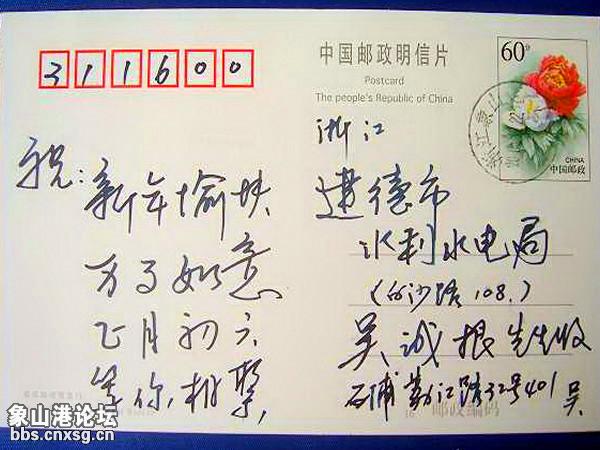 311600
中国邮政明信片
Postcard
The people's Republic of China
60分
CHINA
中国邮政
浙江
建德市
水利水电局
(白沙路108.)
吴诚根先生收
石浦 江路32号401 吴
祝:新年愉快
万事如意
正月初六
等你相聚
邮政编码
象山港论坛
bbs.cnxsg.cn